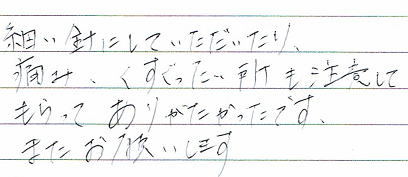 細い針にしていただいたり、
痛み、くすぐったい所も注意して
もらってありがたかったです、
またお願いします